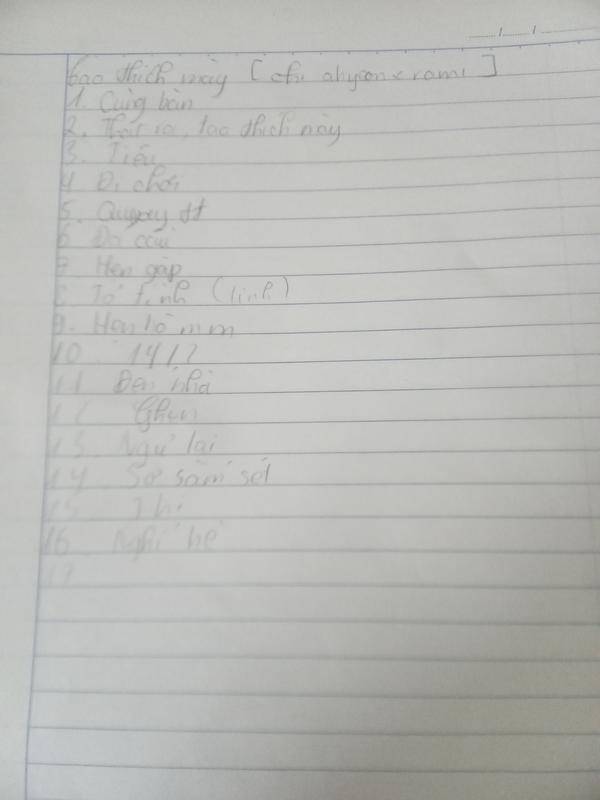 tao thích mày [ chi ahyeon x rami ]
1. Cùng bàn
2. Thật ra, tao thích mày
3. Tiểu
4 Đi chơi
5. Quyay tt
6
7 Hẹn gặp
8 Tỏ tình (linh)
9. Hẹn hò m m
10. 14/2
11 Đến nhà
12 Ghen
13 Ngủ lại
14 Sợ sấm sét
15 Thi
16 Nghỉ hè
17